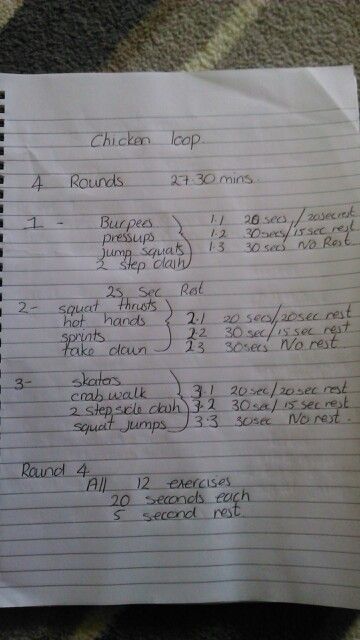 Chicken loop.
4 Rounds 27.30 mins.
1 - Burpees 1.1 20 secs/20sec rest
pressups 1.2 30 secs/15 sec rest
jump squats 1.3 30 secs No Rest
2 step dash
25 sec Rest
2 - squat thrusts
hot hands 2.1 20 secs/20sec rest
sprints 2.2 30 sec/15 sec rest
take down 2.3 30secs No rest
3 - skaters
crab walk 3.1 20sec/20sec rest
2 step side dash 3.2 30sec/15 sec rest
squat jumps 3.3 30sec No rest.
Round 4
All 12 exercises
20 seconds each
5 second rest